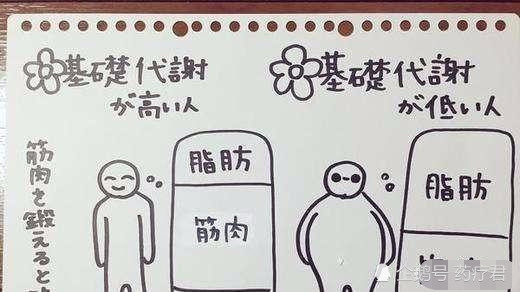 基礎代謝
が高い人
基礎代謝
が低い人
筋肉を鍛えると
脂肪
筋肉
脂肪
企鹅号 药疗君